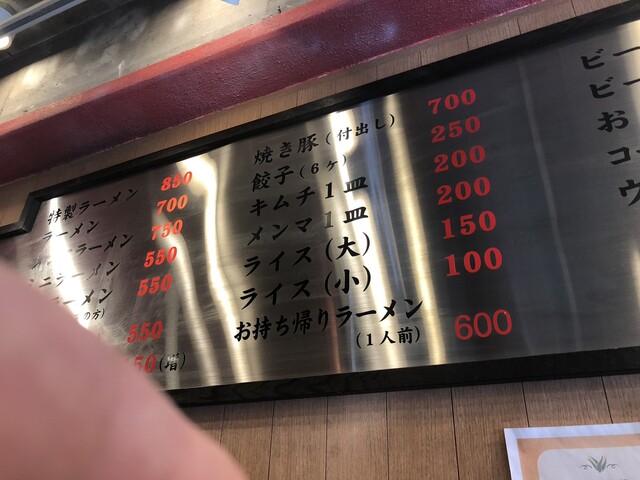 特製ラーメン 850
ラーメン 700
ラーメン 750
ミニラーメン 550
ラーメン 550
の方)
550
50(増)
焼き豚(付出し) 700
餃子(6ヶ) 250
キムチ1皿 200
メンマ1皿 200
ライス(大) 150
ライス(小) 100
お持ち帰りラーメン 600
(1人前)
ビー
ビー
お
コ
ウ